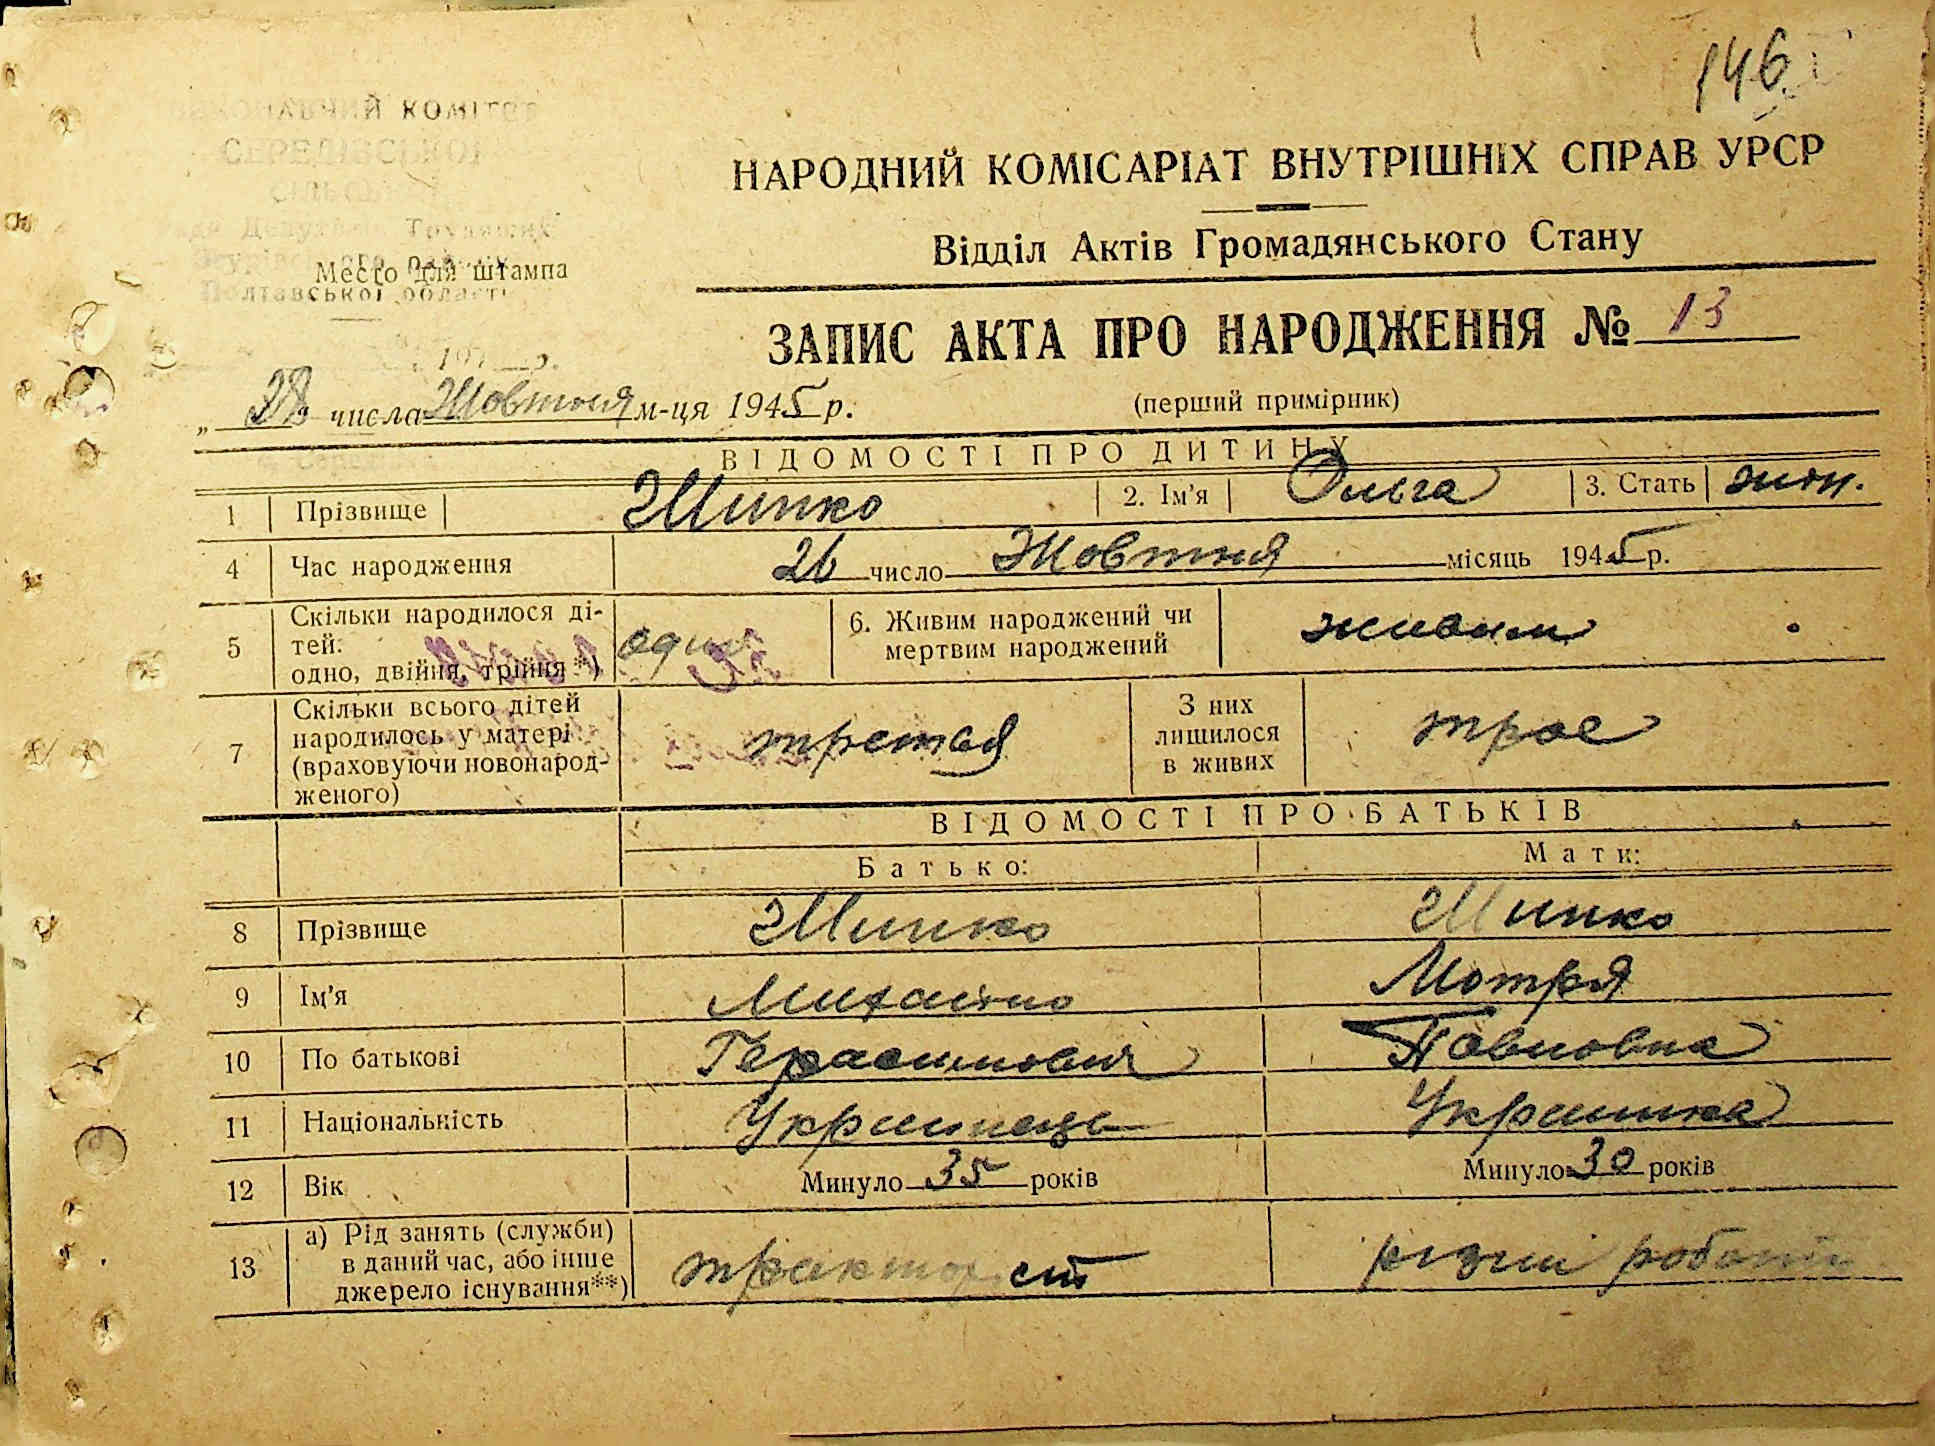 146
ВИКОНАВЧИЙ КОМІТЕТ
СЕРЕДІВСЬКОЇ
Ради Депутатів Трудящих
Місто для штампа
Полтавської області
НАРОДНИЙ КОМІСАРІАТ ВНУТРІШНІХ СПРАВ УРСР
Відділ Актів Громадянського Стану
ЗАПИС АКТА ПРО НАРОДЖЕННЯ № 13
(перший примірник)
„ 28 числа Жовтня м-ця 1945 р.
ВІДОМОСТІ ПРО ДИТИНУ
1 Прізвище Шипко 2. Ім'я Ольга 3. Стать жін.
4 Час народження 26 число Жовтня місяць 1945 р.
5 Скільки народилося ді-
тей:
одно, двійня, трійня **) одно
6. Живим народжений чи
мертвим народжений живим
7 Скільки всього дітей
народилось у матері
(враховуючи новонарод-
женого) третья
З них
лишилося
в живих трое
ВІДОМОСТІ ПРО БАТЬКІВ
Батько: Мати:
8 Прізвище Шипко Шипко
9 Ім'я Михайло Мотря
10 По батькові Герасимович Павловна
11 Національність Украинець Украинка
12 Вік Минуло 35 років Минуло 30 років
13 а) Рід занять (служби)
в даний час, або інше
джерело існування**) тракторист різни роботи